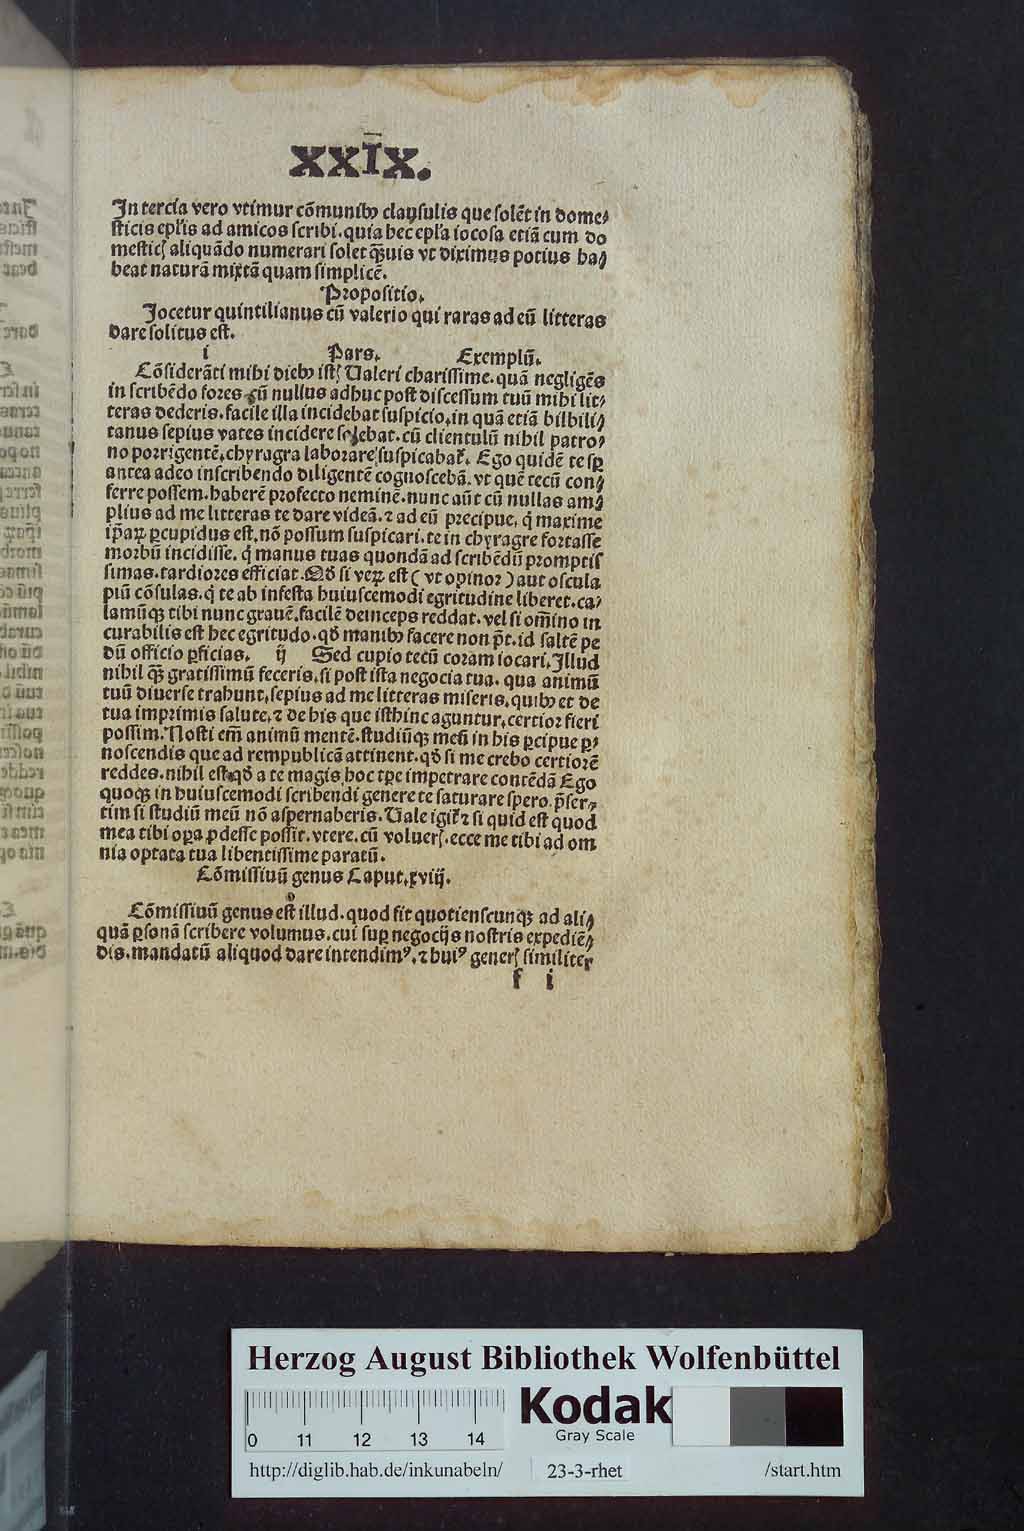 XXIX.
In tercia vero vtimur cõmunibꝰ clausulis que solẽt in dome⸗
sticis eplis ad amicos scribi. quia hec epl'a iocosa etiã cum do
mesticꝭ aliquãdo numerari solet q̃uis vt diximus potius ha⸗
beat naturã mixtã quam simplicẽ.
Propositio.
Jocetur quintilianus cũ valerio qui raras ad eũ litteras
dare solitus est.
i Pars. Exemplũ.
Cõsiderãti mihi diebꝰ istꝭ Valeri charissime. quã negligẽs
in scribẽdo fores cũ nullus adhuc post discessum tuũ mihi lit⸗
teras dederis. facile illa incidebat suspicio, in quã etiã bilbili⸗
tanus sepius vates incidere solebat. cũ clientulũ nihil patro⸗
no porrigentẽ, chyragra laborare suspicabat᷑. Ego quidẽ te sꝑ
antea adeo inscribendo diligentẽ cognoscebã. vt quẽ tecũ con⸗
ferre possem. haberẽ profecto neminẽ. nunc aũt cũ nullas am⸗
plius ad me litteras te dare videã. ⁊ ad eũ precipue, q̇ maxime
ip̃aꝝ ꝑcupidus est, nõ possum suspicari. te in chyragre fortasse
morbũ incidisse. q̇ manus tuas quondã ad scribẽdũ promptis
simas. tardiores efficiat. Qð si veꝝ est ( vt opinor ) aut oscula
piũ cõsulas. q̇ te ab infesta huiuscemodi egritudine liberet. ca⸗
lamũqꝫ tibi nunc grauẽ. facilẽ deinceps reddat. vel si om̃ino in
curabilis est hec egritudo. qð manibꝰ facere non p̃t. id saltẽ pe
dũ officio ꝑficias. ij Sed cupio tecũ coram iocari. Illud
nihil qꝫ̃ gratissimũ feceris. si post ista negocia tua. qua animũ
tuũ diuerse trahunt, sepius ad me litteras miseris. quibꝰ et de
tua imprimis salute, ⁊ de his que isthinc aguntur, certior fieri
possim. Nosti em̃ animũ mentẽ. studiũqꝫ meũ in his ꝑcipue ꝑ⸗
noscendis que ad rempublicã attinent. qð si me crebo certiorẽ
reddes. nihil est qð a te magis hoc tꝑe impetrare contẽdã Ego
quoqꝫ in huiuscemodi scribendi genere te saturare spero. p̃ser⸗
tim si studiũ meũ nõ aspernaberis. Vale igit᷑ ⁊ si quid est quod
mea tibi oꝑa ꝓdesse possit. vtere. cũ voluerꝭ. ecce me tibi ad om
nia optata tua libentissime paratũ.
Cõmissiuũ genus Caput. xviij.
Cõmissiuũ genus est illud. quod fit quotienscunqꝫ ad ali⸗
quã ꝑsonã scribere volumus. cui suꝑ negocijs nostris expediẽ⸗
dis. mandatũ aliquod dare intendimꝰ. ⁊ huiꝰ generꝭ similiter
f i
Herzog August Bibliothek Wolfenbüttel
0 11 12 13 14
Kodak
Gray Scale
http://diglib.hab.de/inkunabeln/ 23-3-rhet /start.htm